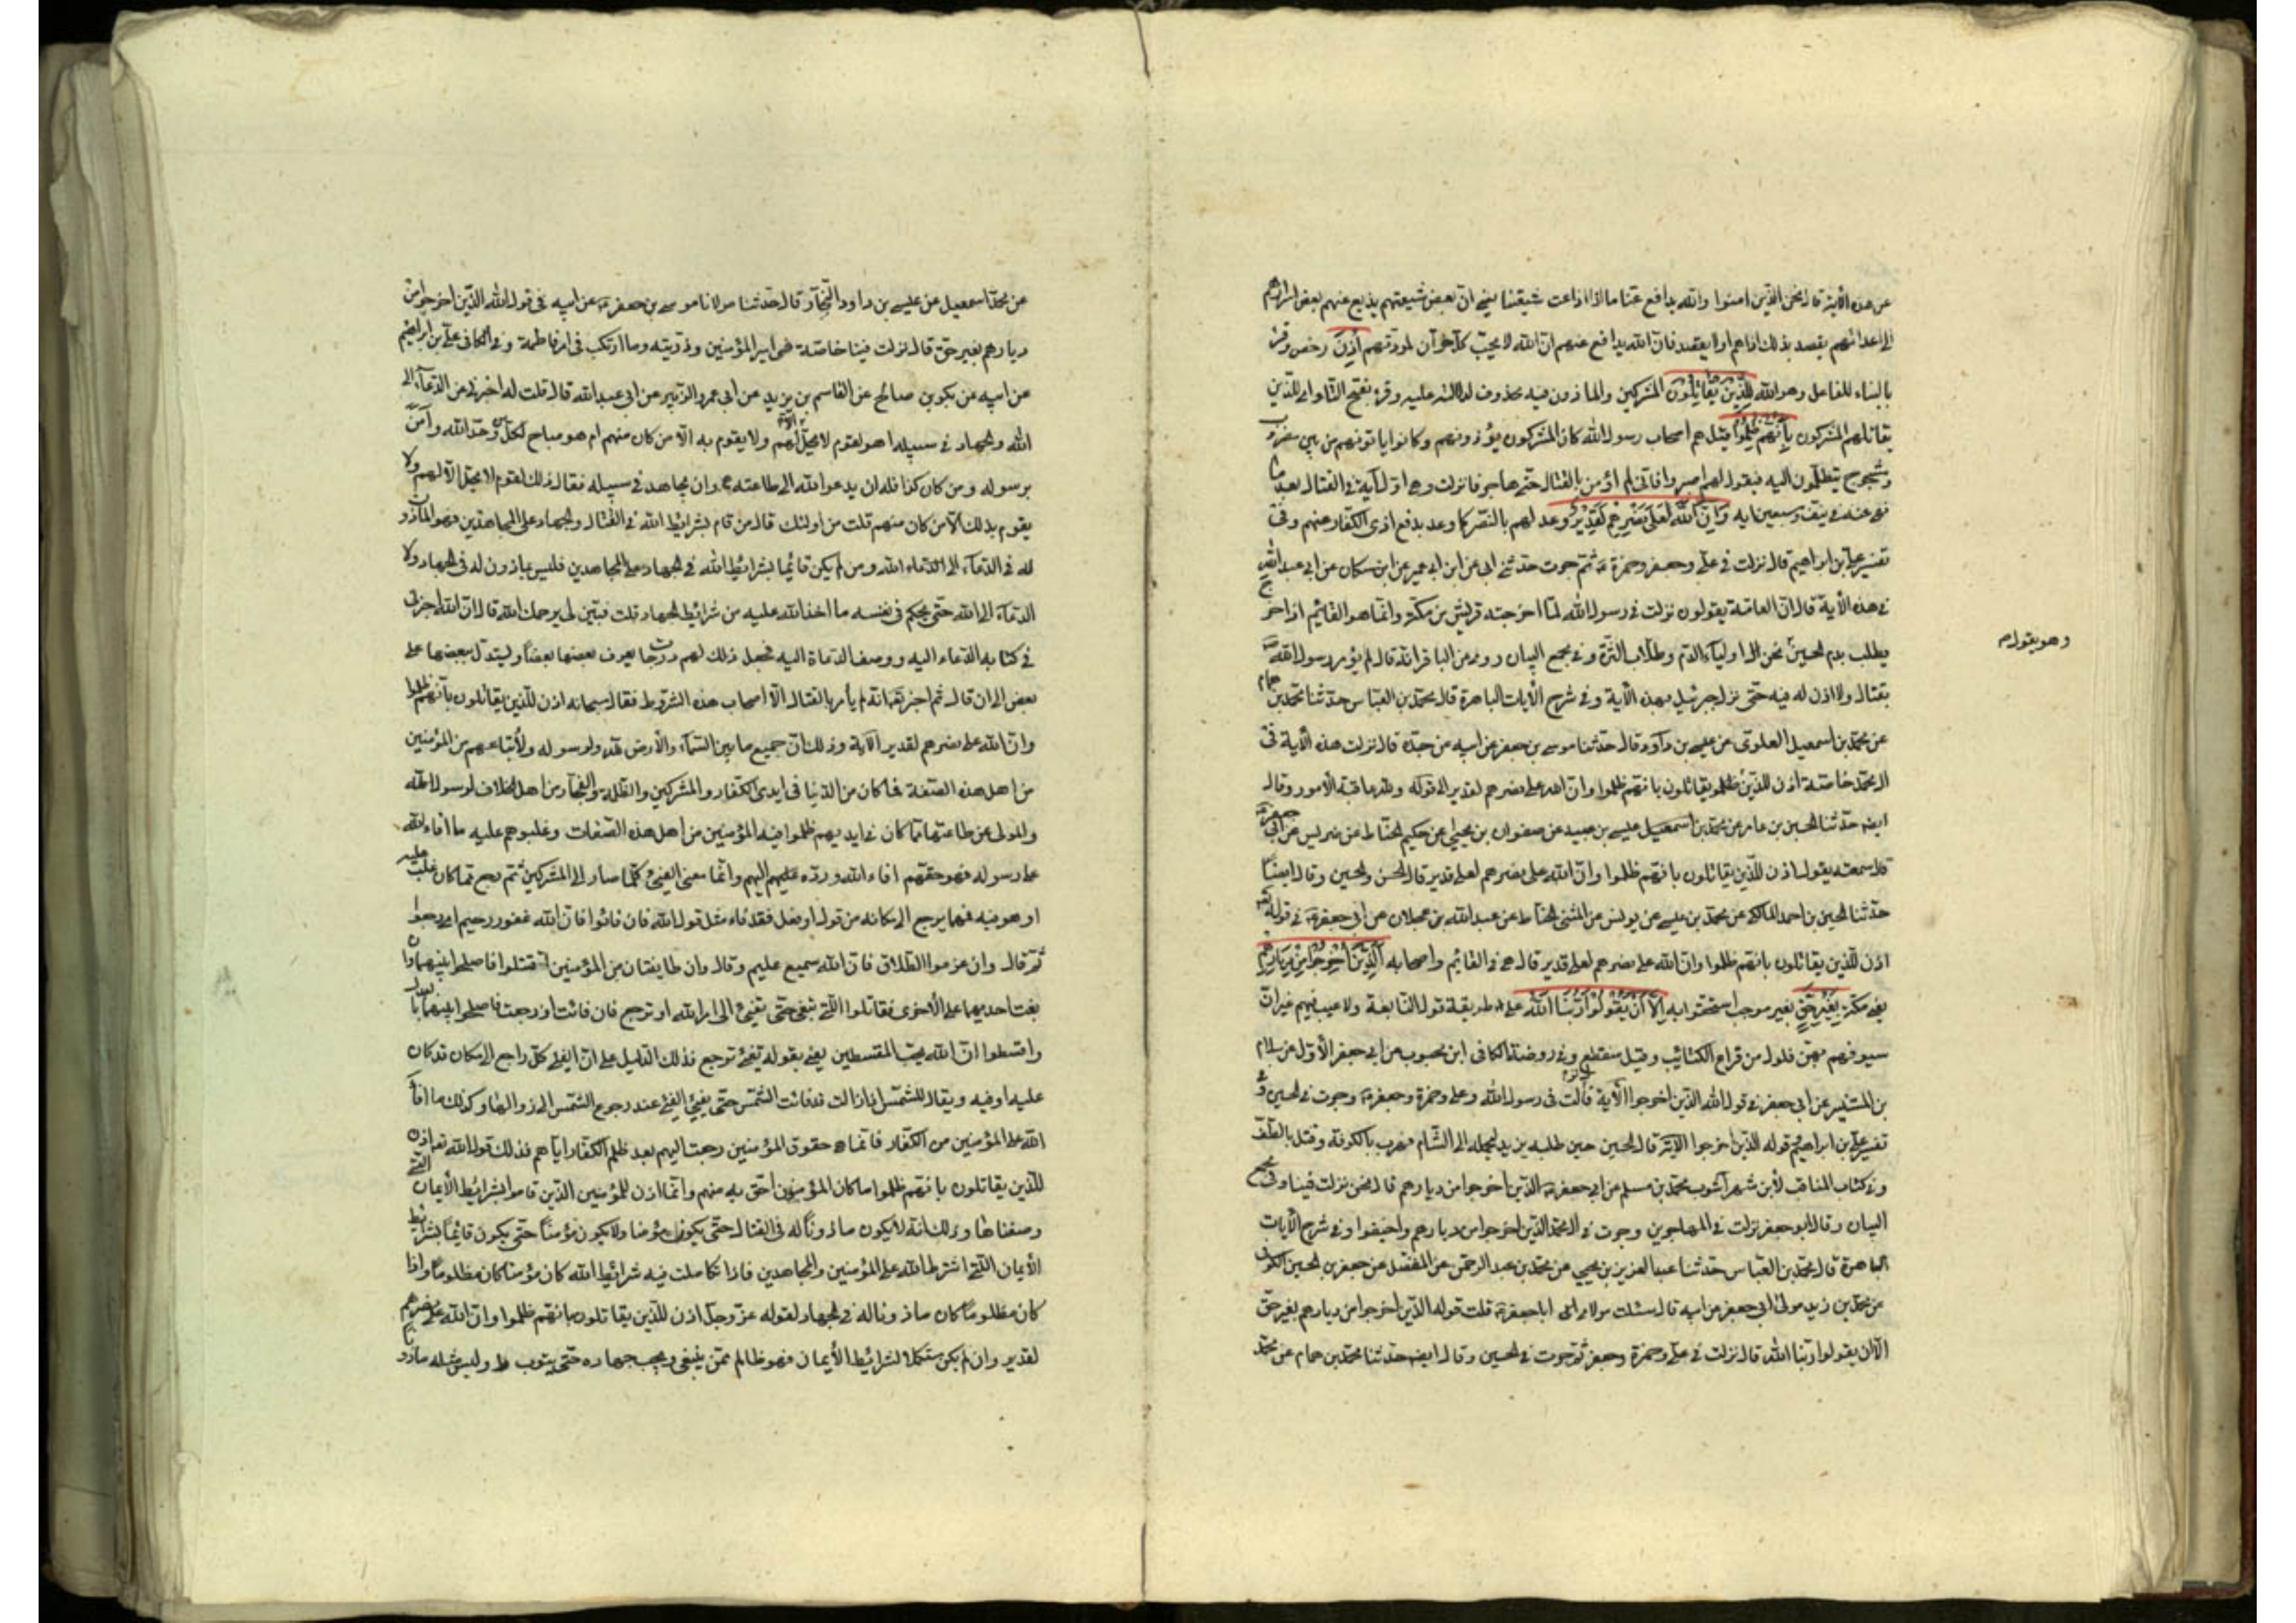 عن هذه الآية قال نحن الذين امنوا والله يدافع عنا ما اذاعت شيعتنا يعني ان بعض شيعتهم يذيع عنهم بعض اسرارهم
الى اعدائهم بقصد بذلك اذاهم اولا بقصد فان الله يدافع عنهم ان الله لا يحب كل خوان لمودتهم اُذِنَ رخص وقرئ
بالبناء للفاعل وهو الله لِلَّذِينَ يُقاتَلُونَ المشركين والماذون فيه محذوف لدلالته عليه وقرئ بفتح التاء اى للذين
يقاتلهم المشركون بِأَنَّهُمْ ظُلِمُوا قيل هم اصحاب رسول الله كان المشركون يؤذونهم وكانوا ياتونه من بين مضروب
ومشجوج يتظلمون اليه فيقول لهم اصبروا فاني لم اؤمر بالقتال حتى هاجر فانزلت وهي اول آية في القتال بعد ما
نهى عنه في نيف وسبعين اية وَإِنَّ اللَّهَ عَلَى نَصْرِهِمْ لَقَدِيرٌ وعد لهم بالنصر كما وعد بدفع اذى الكفار عنهم وفي
تفسير علي بن ابراهيم قال نزلت في علي وجعفر وحمزة ثم جرت حدثني ابى عن ابن ابي عمير عن ابن مسكان عن ابي عبد الله
في هذه الأية قال ان العامة يقولون نزلت في رسول الله لما اخرجته قريش من مكة وانما هو القائم اذا خرج
يطلب بدم الحسين نحن اولياء الدم وطلاب الترة وفي مجمع البيان روى عن الباقر انه قال لم يؤمر رسول الله
وهو يقول
بقتال ولا اذن له فيه حتى نزل جبرئيل بهذه الآية وفي شرح الآيات الباهرة قال محمد بن العباس حدثنا محمد بن همام
عن محمد بن اسمعيل العلوى عن عيسى بن داود قال حدثنا موسى بن جعفر عن ابيه عن جده قال نزلت هذه الأية في
ال محمد خاصة اذن للذين يقاتلون بانهم ظلموا وان الله على نصرهم لقدير الى قوله ولله عاقبة الأمور وقال
ايضا حدثنا الحسين بن عامر عن محمد بن اسمعيل عيسى بن عبيد عن صفوان بن يحيى عن حكيم الحناط عن ضريس عن ابي جعفر
قال سمعته يقول اذن للذين يقاتلون بانهم ظلموا وان الله على نصرهم لقدير قال الحسن والحسين وقال ايضا
حدثنا الحسين بن احمد المالكي عن محمد بن عيسى عن يونس عن المثنى الحناط عن عبد الله بن عجلان عن ابي جعفر في قوله
اذن للذين يقاتلون بانهم ظلموا وان الله على نصرهم لقدير قال هي في القائم واصحابه الَّذِينَ أُخْرِجُوا مِنْ دِيَارِهِمْ
يعني مكة بِغَيْرِ حَقٍّ بغير موجب استحقوا به إِلَّا أَنْ يَقُولُوا رَبُّنَا اللَّهُ على طريقة قول النابغة ولا عيب فيهم غير ان
سيوفهم بهن فلول من قراع الكتائب وقيل منقطع وفي روضة الكافي ابن محبوب عن ابي جعفر الأول عن سلام
بن المستنير عن ابي جعفر في قول الله الذين اخرجوا الأية قال نزلت في رسول الله وعلي وحمزة وجعفر وجرت في الحسين وفي
تفسير علي بن ابراهيم قوله الذين اخرجوا الآية قال الحسين حين طلبه يزيد لحمله الى الشام فهرب بالكوفة وقتل بالطف
وفي كتاب المناقب لأبن شهر آشوب محمد بن مسلم عن ابي جعفر الذين اخرجوا من ديارهم قال نحن نزلت فينا وفي مجمع
البيان وقال ابو جعفر نزلت في المهاجرين وجرت في ال محمد الذين اخرجوا من ديارهم واخيفوا وفي شرح الأيات
الباهرة قال محمد بن العباس حدثنا عبد العزيز بن يحيى عن محمد بن عبد الرحمن عن المفضل عن جعفر بن الحسين الكوفي
عن محمد بن زيد مولى ابي جعفر عن ابيه قال سئلت مولاى ابا جعفر قلت قوله الذين اخرجوا من ديارهم بغير حق
الا ان يقولوا ربنا الله قال نزلت في علي وحمزة وجعفر ثم جرت في الحسين وقال ايضا حدثنا محمد بن همام عن محمد
عن محمد اسمعيل عن عيسى بن داود النجار قال حدثنا مولانا موسى بن جعفر عن ابيه في قول الله الذين اخرجوا من
ديارهم بغير حق قال نزلت فينا خاصة في امير المؤمنين وذريته وما ارتكب في امر فاطمة وفي الكافي علي بن ابراهيم
عن ابيه عن بكر بن صالح عن القاسم بن بريد عن ابى عمرو الزبيرى عن ابى عبد الله قال قلت له اخبرني عن الدعآء الى
الله والجهاد في سبيله اهو لقوم لا يحل الا لهم ولا يقوم به الا من كان منهم ام هو مباح لكل من وحد الله وآمن
برسوله ومن كان كذا فله ان يدعو الله الى طاعته وان يجاهد في سبيله فقال ذلك لقوم لا يحل الا لهم ولا
يقوم بذلك الا من كان منهم قلت من اولئك قال من قام بشرائط الله في القتال والجهاد على المجاهدين فهو المأذون
له في الدعآء الى الله ومن لم يكن قائما بشرائط الله في الجهاد على المجاهدين فليس بماذون له في الجهاد ولا
الدعآء الى الله حتى يحكم في نفسه ما اخذ الله عليه من شرائط الجهاد قلت فبين لي يرحمك الله قال ان الله اخبر
في كتابه الدعاء اليه ووصف الدعاة اليه فجعل ذلك لهم درجات يعرف بعضها بعضا ويستدل ببعضها على
بعض الى ان قال ثم اخبر تعالى انه لم يأمر بالقتال الا اصحاب هذه الشروط فقال سبحانه اذن للذين يقاتلون بأنهم ظلموا
وان الله على نصرهم لقدير الآية وذلك ان جميع ما بين السماء والأرض لله ولرسوله ولأتباعهم من المؤمنين
من اهل هذه الصفة فما كان من الدنيا في ايدى الكفار والمشركين والظلمة والفجار من اهل الخلاف لرسول الله
والمولى عن طاعتهما مما كان في ايديهم ظلموا فيه المؤمنين من اهل هذه الصفات وغلبوهم عليه ما افاء الله
على رسوله فهو حقهم افاء الله ورده عليهم اليهم وانما معنى الفيئ كلما صار الى المشركين ثم رجع مما كان غلب عليه
او هو فيه فما يرجع الى مكانه من قول او فعل فقد فاء مثل قول الله فان فائوا فان الله غفور رحيم اى رجعوا
ثم قال وان عزموا الطلاق فان الله سميع عليم وقال وان طايفتان من المؤمنين اقتتلوا فاصلحوا بينهما وان
بغت احديهما على الأخرى فقاتلوا التي تبغي حتى تفيئ الى امر الله او ترجع فان فائت اى رجعت فاصلحوا بينهما بالعدل
واقسطوا ان الله يحب المقسطين يعني بقوله تفيئ ترجع فذلك الدليل على ان الفئ كل راجع الى مكان قد كان
عليه او فيه ويقال للشمس اذا زالت قد فائت الشمس حتى يفيئ الفئ عند رجوع الشمس الى زوالها وكذلك ما افاء
الله على المؤمنين من الكفار فانما هي حقوق المؤمنين رجعت اليهم بعد ظلم الكفار اياهم فذلك قول الله تعالى اذن
للذين يقاتلون بانهم ظلموا ما كان المؤمنون احق به منهم وانما اذن للمؤمنين الذين قاموا بشرائط الأيمان التي
وصفناها وذلك انه لا يكون ماذونا له في القتال حتى يكون مظلوما ولا يكون مؤمنا حتى يكون قائما بشرائط
الأيمان التي اشترط الله على المؤمنين والمجاهدين فاذا تكاملت فيه شرائط الله كان مؤمنا كان مظلوما واذا
كان مظلوما كان ماذونا له في الجهاد لقوله عز وجل اذن للذين يقاتلون بانهم ظلموا وان الله على نصرهم
لقدير وان لم يكن مستكملا لشرائط الأيمان فهو ظالم ممن ينبغي ويجب جهاده حتى يتوب وليس مثله ماذونا